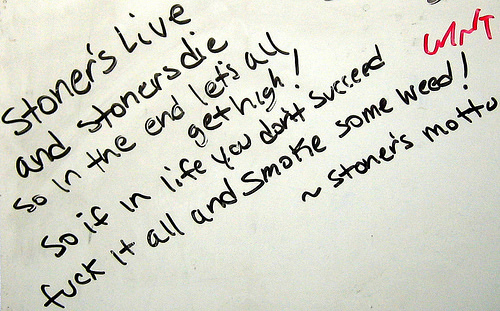 Stoner's Live
and stoners die
so in the end let's all
get high!
so if in life you don't succeed
fuck it all and smoke some weed!
~ stoner's motto